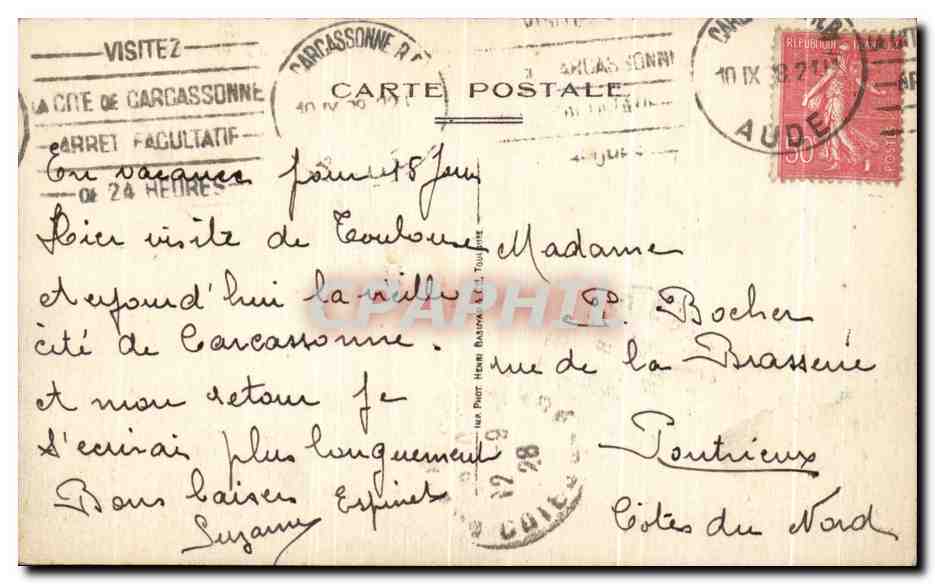 VISITEZ
LA CITE DE CARCASSONNE
ARRET FACULTATIF
DE 24 HEURES
CARCASSONNE R.P.
10 IX 28
CARTE POSTALE
CARCASSONNE
AUDE
10 IX 28 21
REPUBLIQUE
50
POSTES
En vacances pour 18 Jours
Hier visite de Toulouse
et aujourd'hui la vieille
cité de Carcassonne.
et mon retour je
t'ecrirai plus longuement
Bons baisers Espinet
Suzanne
IMP. PHOT. HENRI BASUYAU & CIE, TOULOUSE
Madame
P. Bocher
rue de la Brasserie
Pontrieux
Côtes du Nord
12 - 9
28
COTES
CPAPHIL